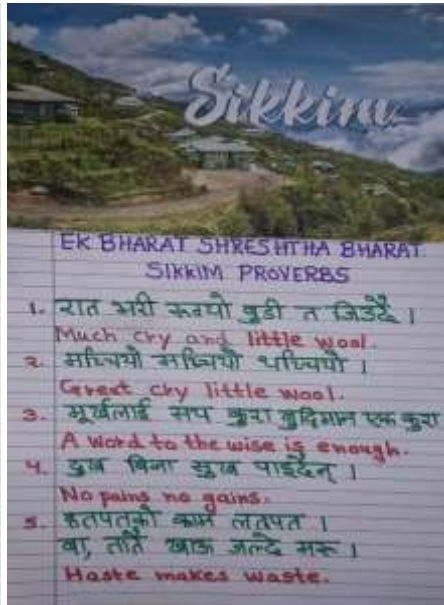 Sikkim
EK BHARAT SHRESHTHA BHARAT
SIKKIM PROVERBS
1. रात भरी रून्यो बुडी त जिउदै ।
Much cry and little wool.
२. मच्चियो मच्चियो थच्चियो ।
Great cry little wool.
3. मूर्खलाई सय कुरा बुद्धिमान एक कुरा
A word to the wise is enough.
४. दुख बिना सुख पाइदैन् ।
No pains no gains.
5. हतपतको काम लतपत ।
वा, तातै खाऊ जल्दै मरू ।
Haste makes waste.